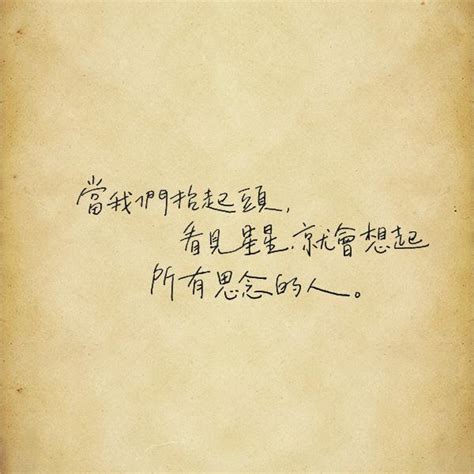 當我們抬起頭,
看見星星,就會想起
所有思念的人。